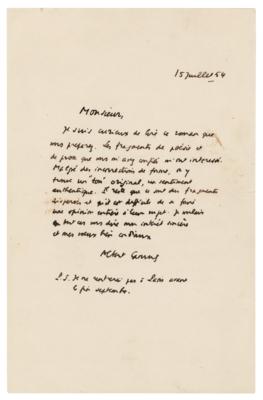 15 juillet 54
Monsieur,
Je suis curieux de lire ce roman que
vous préparez. Les fragments de poésie et
de prose que vous m'avez m'ont intéressé.
Malgré des incorrections de forme, on y
trouve un "ton" original, un sentiment
authentique. Il reste que ce sont des fragments
dispersés et qu'il est difficile de se faire
une opinion entière à leur sujet. Je voulais
en tout cas vous dire mon intérêt sincère
et mes vœux bien cordiaux
Albert Camus
P.S. Je ne rentrerai pas à Paris avant
le septembre.